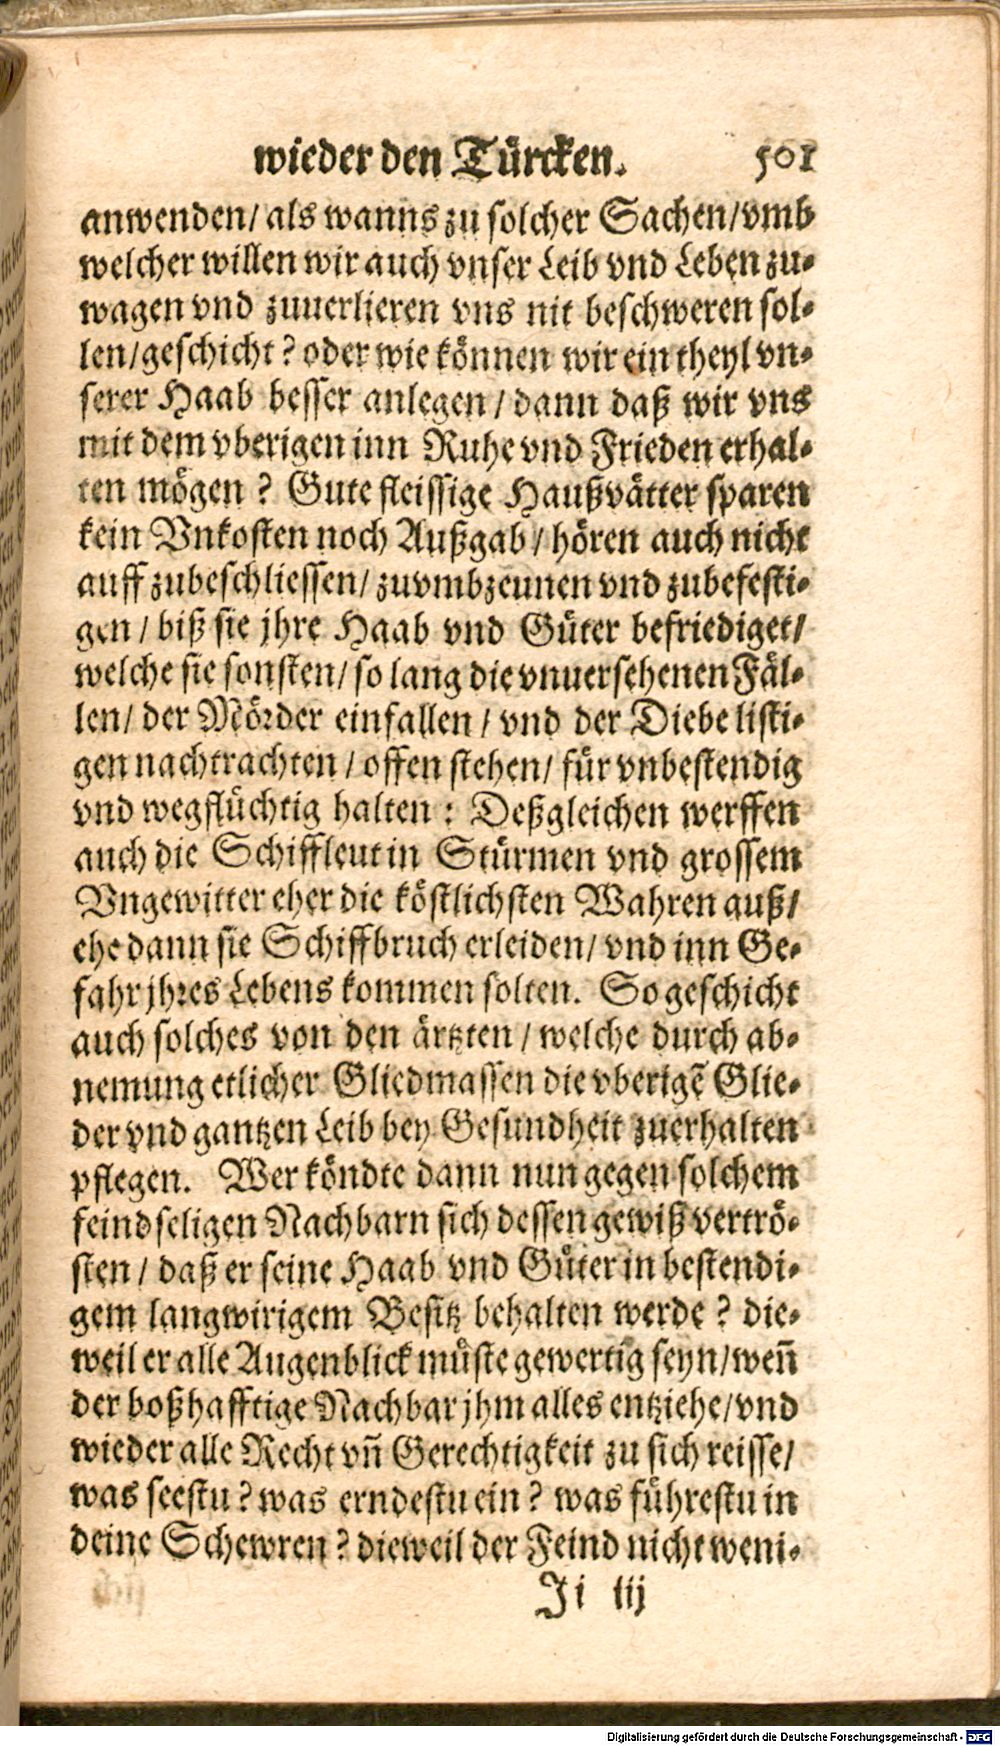 wieder den Türcken. 501
anwenden/ als wanns zu solcher Sachen/ vmb
welcher willen wir auch vnser Leib vnd Leben zu-
wagen vnd zuuerlieren vns nit beschweren sol-
len/ geschicht? oder wie können wir ein theyl vn-
serer Haab besser anlegen/ dann daß wir vns
mit dem vberigen inn Ruhe vnd Frieden erhal-
ten mögen? Gute fleissige Haußvätter sparen
kein Vnkosten noch Außgab/ hören auch nicht
auff zubeschliessen/ zuvmbzeunen vnd zubefesti-
gen/ biß sie jhre Haab vnd Güter befriediget/
welche sie sonsten/ so lang die vnuersehenen Fäl-
len/ der Mörder einfallen/ vnd der Diebe listi-
gen nachtrachten/ offen stehen/ für vnbestendig
vnd wegflüchtig halten: Deßgleichen werffen
auch die Schiffleut in Stürmen vnd grossem
Vngewitter eher die köstlichsten Wahren auß/
ehe dann sie Schiffbruch erleiden/ vnd inn Ge-
fahr jhres Lebens kommen solten. So geschicht
auch solches von den ärtzten/ welche durch ab-
nemung etlicher Gliedmassen die vberigẽ Glie-
der vnd gantzen Leib bey Gesundheit zuerhalten
pflegen. Wer köndte dann nun gegen solchem
feindseligen Nachbarn sich dessen gewiß vertrö-
sten/ daß er seine Haab vnd Güter in bestendi-
gem langwirigem Besitz behalten werde? die-
weil er alle Augenblick müste gewertig seyn/ weñ
der boßhafftige Nachbar jhm alles entziehe/ vnd
wieder alle Recht vñ Gerechtigkeit zu sich reisse/
was seestu? was erndestu ein? was führestu in
deine Schewren? dieweil der Feind nicht weni-
Ji iij
Digitalisierung gefördert durch die Deutsche Forschungsgemeinschaft - DFG